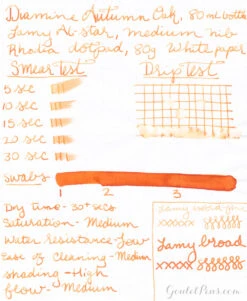 Diamine Autumn Oak, 80 ml bottle
Lamy Al-Star, medium nib
Rhodia dotpad, 80g white paper
Smear Test
Drip Test
5 sec
10 sec
15 sec
20 sec
30 sec
Swabs
1 2 3
Dry Time - 30+ secs
Saturation - Medium
Water Resistance - Low
Ease of Cleaning - Medium
Shading - High
Flow - Medium
Lamy broad
xxxxx
GouletPens.com